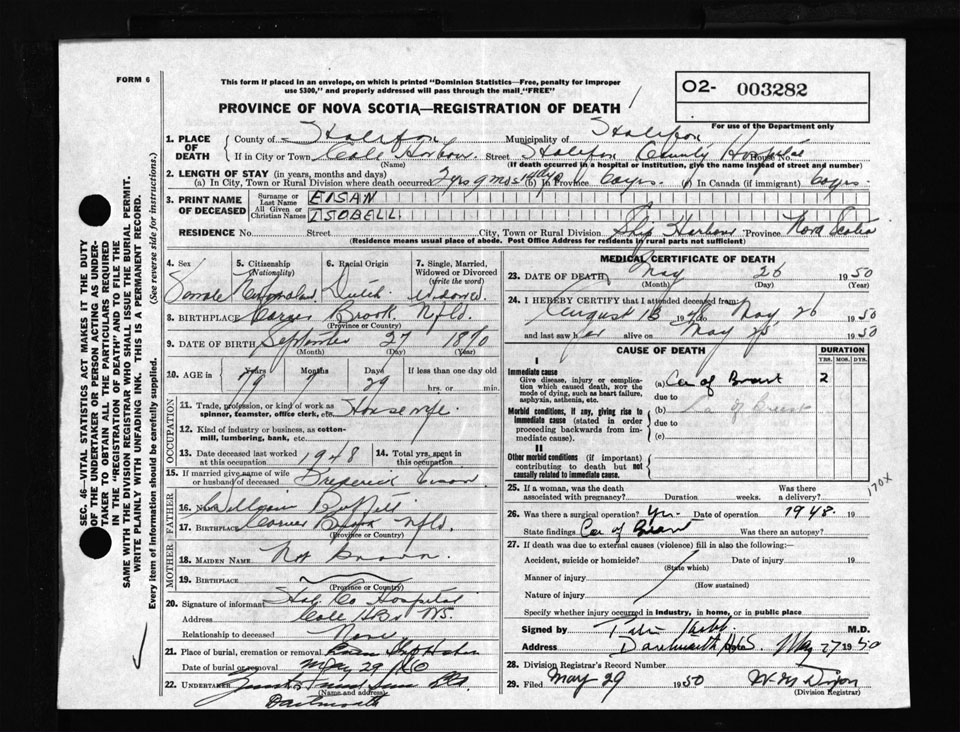 FORM 6
This form if placed in an envelope, on which is printed "Dominion Statistics—Free, penalty for improper
use $300," and properly addressed will pass through the mail "FREE"
PROVINCE OF NOVA SCOTIA—REGISTRATION OF DEATH
O2- 003282
For use of the Department only
SEC. 46—VITAL STATISTICS ACT MAKES IT THE DUTY
OF THE UNDERTAKER OR PERSON ACTING AS UNDER-
TAKER TO OBTAIN ALL THE PARTICULARS REQUIRED
IN THE "REGISTRATION OF DEATH" AND TO FILE THE
SAME WITH THE DIVISION REGISTRAR WHO SHALL ISSUE THE BURIAL PERMIT.
WRITE PLAINLY WITH UNFADING INK. THIS IS A PERMANENT RECORD.
Every item of information should be carefully supplied. (See reverse side for instructions.)
1. PLACE OF DEATH County of Halifax Municipality of Halifax
If in City or Town Cole Harbour Street Halifax County Hospital House No.
(Name) (If death occurred in a hospital or institution, give the name instead of street and number)
2. LENGTH OF STAY (in years, months and days)
(a) In City, Town or Rural Division where death occurred 2 yrs 9 mos days (b) In Province 60 yrs. (c) In Canada (if immigrant) 60 yrs.
3. PRINT NAME OF DECEASED Surname or Last Name EISAN
All Given or Christian Names ISOBELL
RESIDENCE No. Street City or Town Rural Division Ship Harbour Province Nova Scotia
(Residence means usual place of abode. Post Office Address for residents in rural parts not sufficient)
4. Sex Female
5. Citizenship (Nationality)
6. Racial Origin Dutch
7. Single, Married, Widowed or Divorced (write the word) Widowed
8. BIRTHPLACE Corner Brook Nfld.
(Province or Country)
9. DATE OF BIRTH September 27 1870
(Month) (Day) (Year)
10. AGE in Years 79 Months 7 Days 29 If less than one day old hrs. or min.
OCCUPATION
11. Trade, profession, or kind of work as spinner, teamster, office clerk, etc. Housewife.
12. Kind of industry or business, as cotton-mill, lumbering, bank, etc.
13. Date deceased last worked at this occupation 1948
14. Total yrs. spent in this occupation
15. If married give name of wife or husband of deceased Frederick Eisan
FATHER
16. Name William
17. Birthplace Corner Brook Nfld.
(Province or Country)
MOTHER
18. MAIDEN NAME Not Known.
19. BIRTHPLACE
(Province or Country)
20. Signature of informant Hal. Co Hospital
Address Cole HBr NS.
Relationship to deceased None
21. Place of burial, cremation or removal
Date of burial or removal May 29
22. UNDERTAKER
(Name and address)
Dartmouth
MEDICAL CERTIFICATE OF DEATH
23. DATE OF DEATH May 26 1950
(Month) (Day) (Year)
24. I HEREBY CERTIFY that I attended deceased from:
August 13 to May 26 1950
and last saw her alive on May 25 1950
CAUSE OF DEATH
DURATION
YRS. MOS. DYS.
I
Immediate cause
Give disease, injury or complication which caused death, not the mode of dying, such as heart failure, asphyxia, asthenia, etc.
(a) Ca of Breast 2
due to
Morbid conditions, if any, giving rise to immediate cause (stated in order proceeding backwards from immediate cause).
(b) Ca of Breast
due to
(c)
II
Other morbid conditions (if important) contributing to death but not causally related to immediate cause.
25. If a woman, was the death associated with pregnancy? Duration weeks. Was there a delivery?
170x
26. Was there surgical operation? Yes Date of operation 1948 19
State findings Ca of Breast Was there an autopsy?
27. If death was due to external causes (violence) fill in also the following:—
Accident, suicide or homicide? Date of injury 19
(State which)
Manner of injury
(How sustained)
Nature of injury
Specify whether injury occurred in industry, in home, or in public place
Signed by M.D.
Address Dartmouth May 27 1950
28. Division Registrar's Record Number
29. Filed May 29 1950 W M Dixon
(Division Registrar)